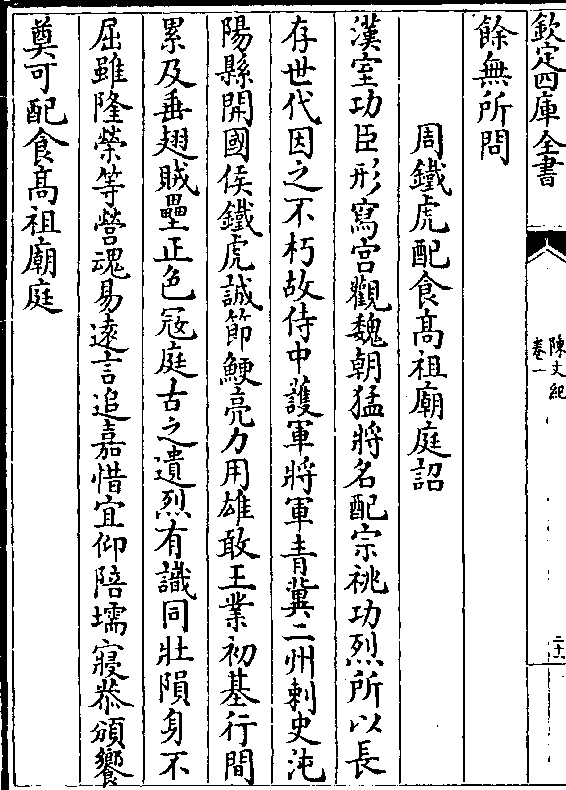 欽定四庫全書
陳文紀
卷一
二十一
餘無所問
周鐵虎配食髙祖廟庭詔
漢室功臣形寫宫觀魏朝猛將名配宗祧功烈所以長
存世代因之不朽故侍中護軍將軍青冀二州刺史沌
陽縣開國侯鐵虎誠節鯁亮力用雄敢王業初基行間
累及垂翅賊壘正色冦庭古之遺烈有識同壯隕身不
屈雖隆榮等營魂易逺言追嘉惜宜仰陪壖寢恭頒饗
奠可配食髙祖廟庭